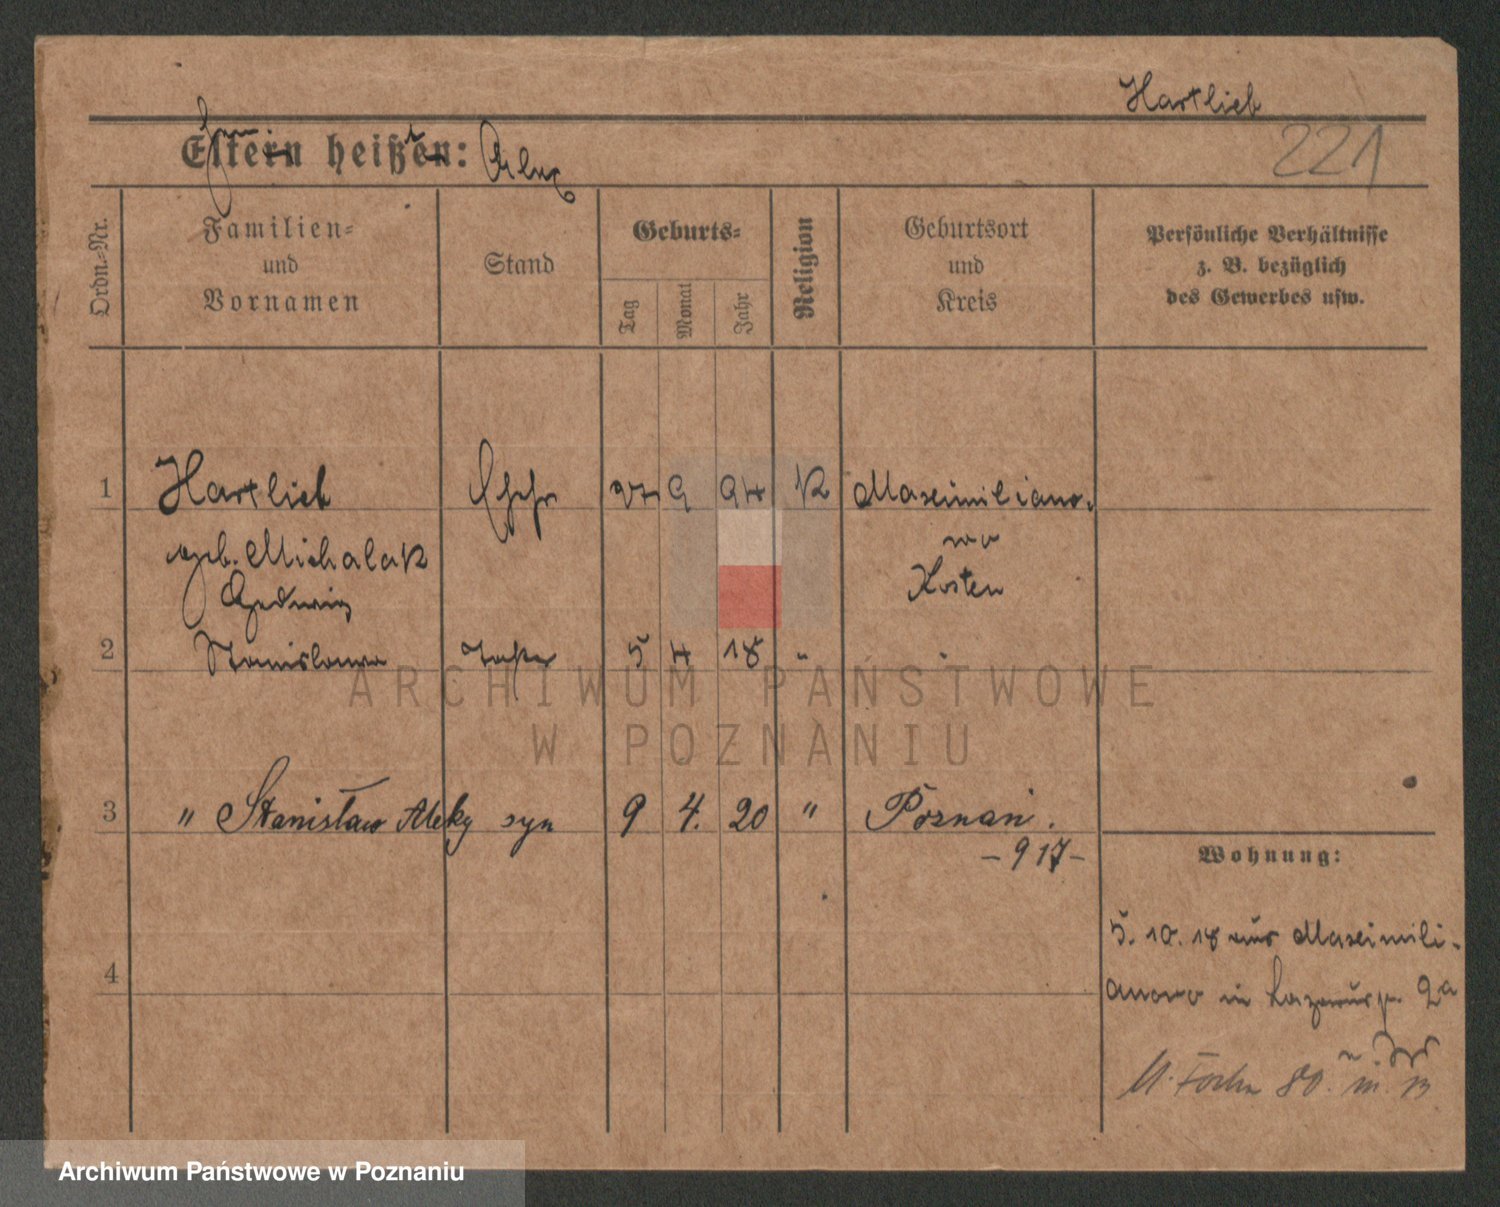 Hartlieb
221
Eltern heißen:
Ordn.-Nr.
Familien-
und
Vornamen
Stand
Geburts-
Tag
Monat
Jahr
Religion
Geburtsort
und
Kreis
Persönliche Verhältnisse
z. B. bezüglich
des Gewerbes usw.
1 Hartlieb Ehefr 27 9 94 K Maximiliano-
wo
geb. Michalak
Kosten
Hedwig
2 Stanislawa Tochter 5 4 18 "
3 " Stanisław syn 9 4. 20 " Poznań.
- 917 -
Wohnung:
5. 10. 18 aus Maximili-
4
anowo in 2a
80. m. 13
ARCHIWUM PAŃSTWOWE
W POZNANIU
Archiwum Państwowe w Poznaniu